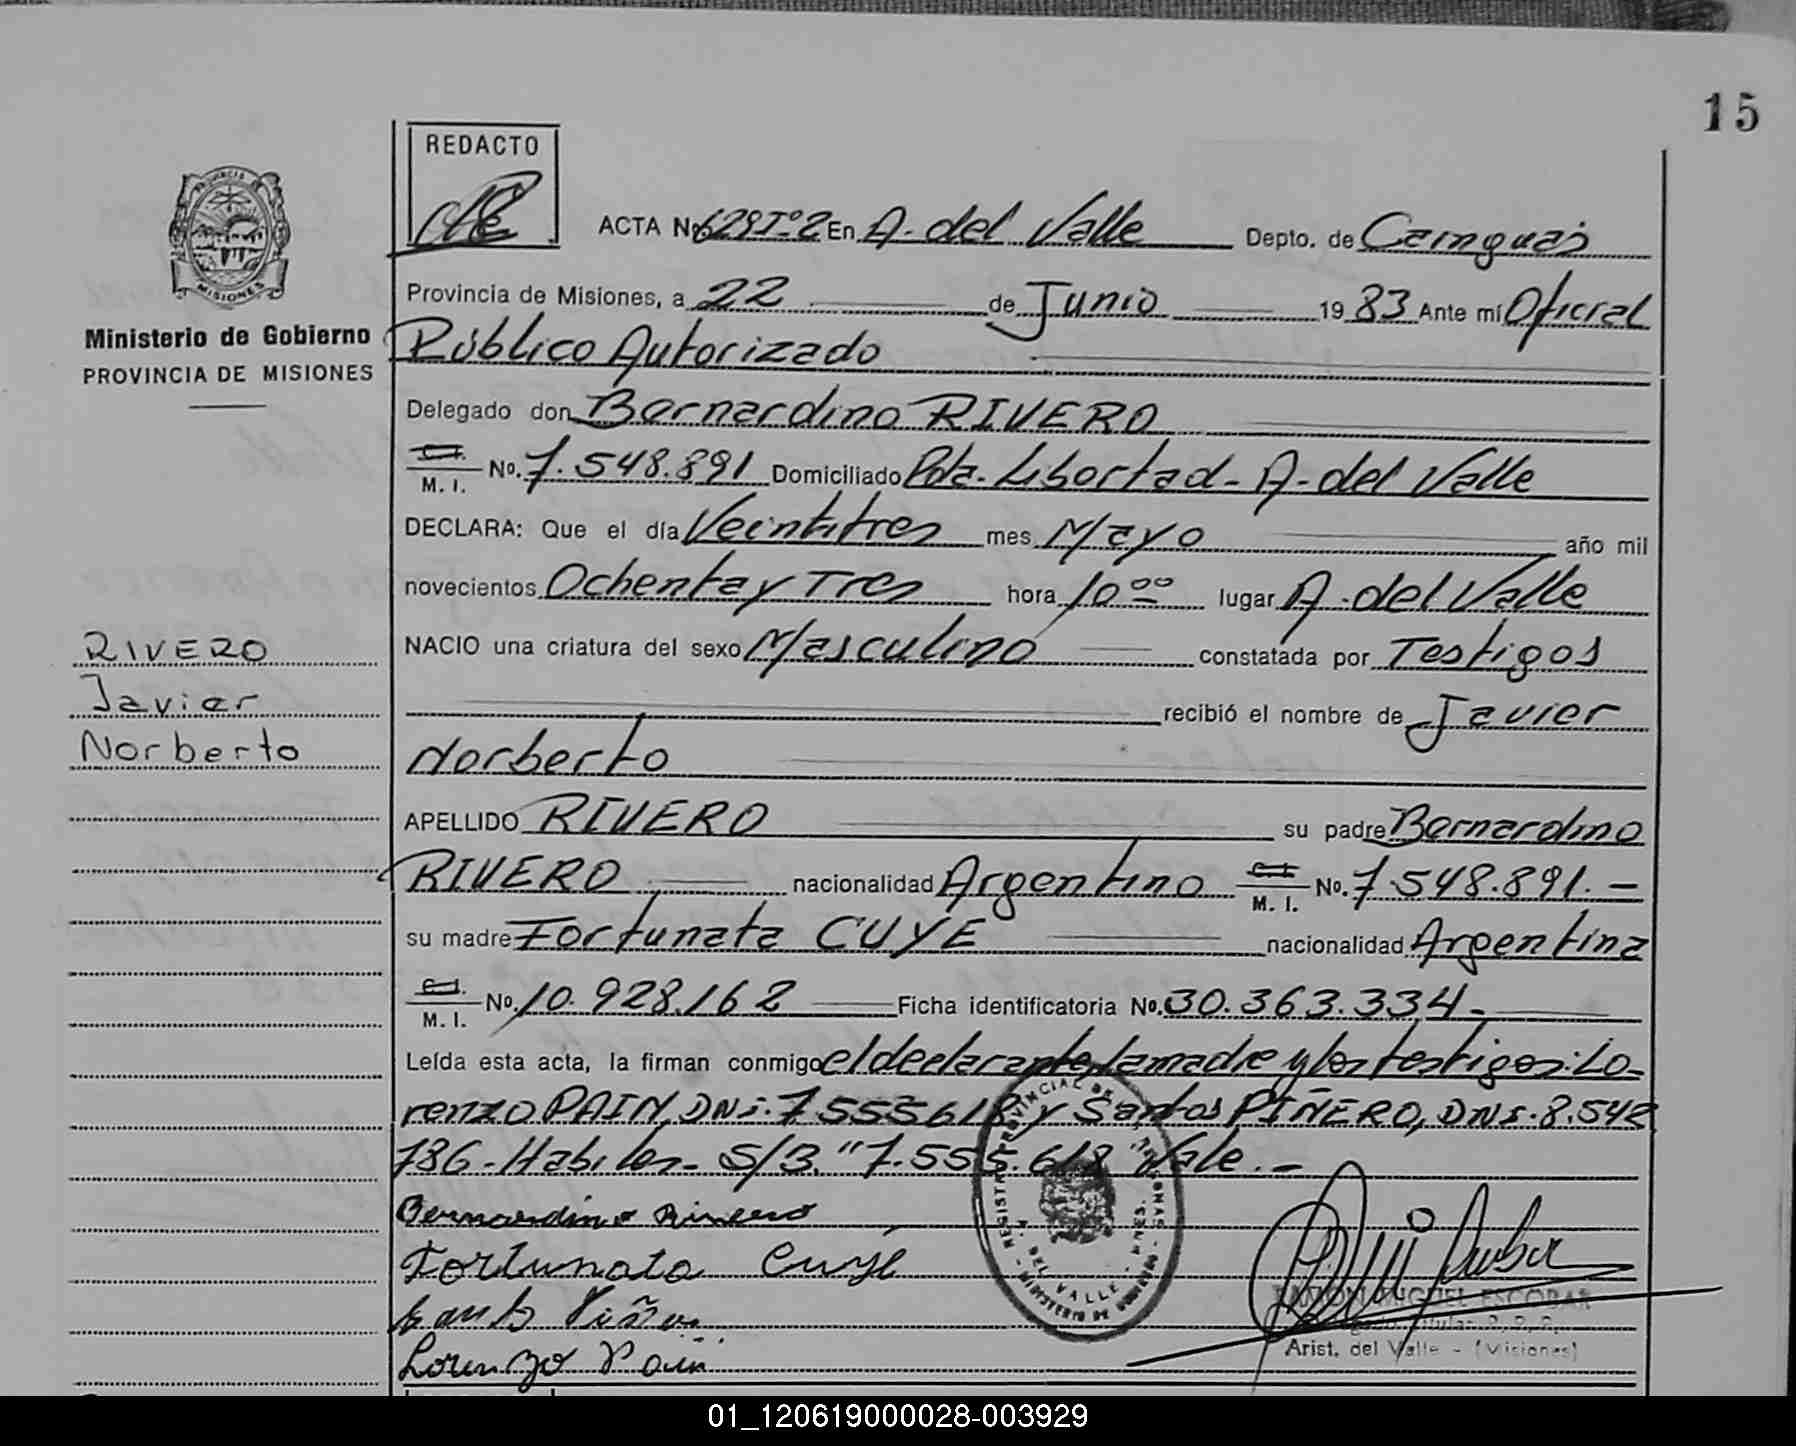 15
REDACTO
ACTA No. 629Tº2 En A. del Valle Depto. de Cainguás
PROVINCIA DE MISIONES
Provincia de Misiones, a 22 de Junio 1983 Ante mi Oficial
Ministerio de Gobierno
PROVINCIA DE MISIONES
Público Autorizado
Delegado don Bernardino RIVERO
C.I. M. I. No. 7.548.891 Domiciliado Pda. Libertad - A. del Valle
DECLARA: Que el día Veintitres mes Mayo año mil
novecientos Ochenta y Tres hora 10 00 lugar A. del Valle
NACIO una criatura del sexo Masculino constatada por Testigos
RIVERO
Javier
Norberto
recibió el nombre de Javier
Norberto
APELLIDO RIVERO su padre Bernardino
RIVERO nacionalidad Argentino C.I. M. I. No. 7.548.891.-
su madre Fortunata CUYE nacionalidad Argentina
C.I. M. I. No. 10.928.162 Ficha identificatoria No. 30.363.334.-
Leída esta acta, la firman conmigo el declarante, la madre y los testigos: Lo-
renzo PAIN, DNI. 7.555618 y Santos PIÑERO, DNI. 8.548
786 - Habiles - S/3. "7.555.618 Vale.-
Bernardino Rivero
Fortunata Cuye
Santos Piñero
Lorenzo Pain
REGISTRO PROVINCIAL DE LAS PERSONAS
A. DEL VALLE - MNES.
MINISTERIO DE GOBIERNO
RAMON MIGUEL ESCOBAR
Delegado Titular R. P. P.
Arist. del Valle - (Misiones)
01_120619000028-003929